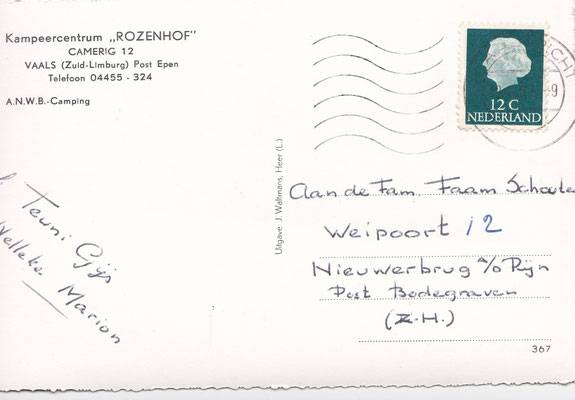 Kampeercentrum „ROZENHOF"
CAMERIG 12
VAALS (Zuid-Limburg) Post Epen
Telefoon 04455 - 324
A.N.W.B.-Camping
12 C
NEDERLAND
Teuni Gijs
Nelleke Marion
Uitgave: J. Waltmans, Heer (L.)
Aan de Fam. Faam Schoute
Weipoort 12
Nieuwerbrug a/o Rijn
Post Bodegraven
(Z.H.)
367